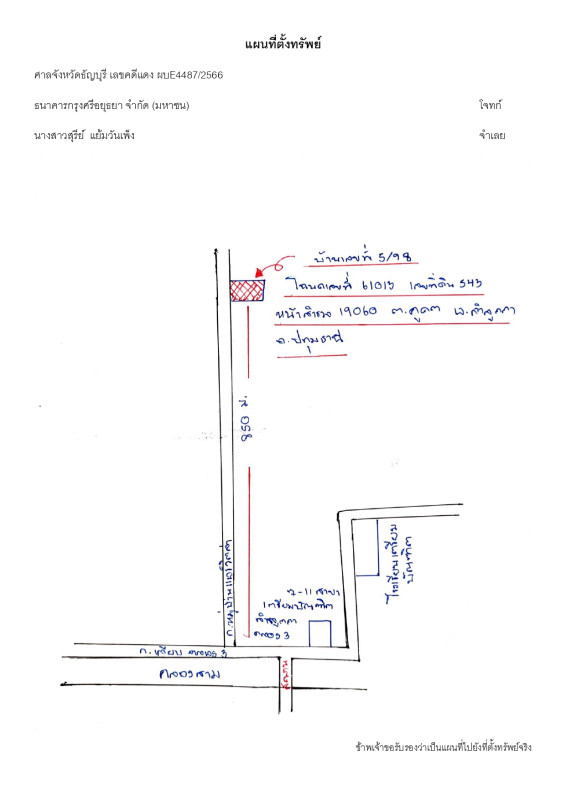 แผนที่ตั้งทรัพย์
ศาลจังหวัดธัญบุรี เลขคดีแดง ผบE4487/2566
ธนาคารกรุงศรีอยุธยา จำกัด (มหาชน) โจทก์
นางสาวสุรีย์ แย้มวันเพ็ง จำเลย
บ้านเลขที่ 5/98
โฉนดเลขที่ 61013 เลขที่ดิน 543
หน้าสำรวจ 19060 ต.คูคต อ.ลำลูกกา
จ.ปทุมธานี
850 ม.
ถ.หมู่บ้าน
โรงเรียนเตรียม
บัณฑิต
7-11 สาขา
เตรียมบัณฑิต
ลำลูกกา
คลอง 3
ถ.เลียบ คลอง 3
คลองสาม
สะพาน
ข้าพเจ้าขอรับรองว่าเป็นแผนที่ไปยังที่ตั้งทรัพย์จริง